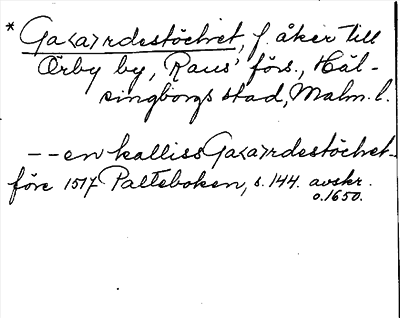 * Ga<a>rdestöchet, f. åker till
Örby by, Raus' förs., Häl-
singborgs stad, Malm. l.
-- en kalliss Ga<a>rdestöchet -
före 1517 Palteboken, s. 144. avskr.
o. 1650.